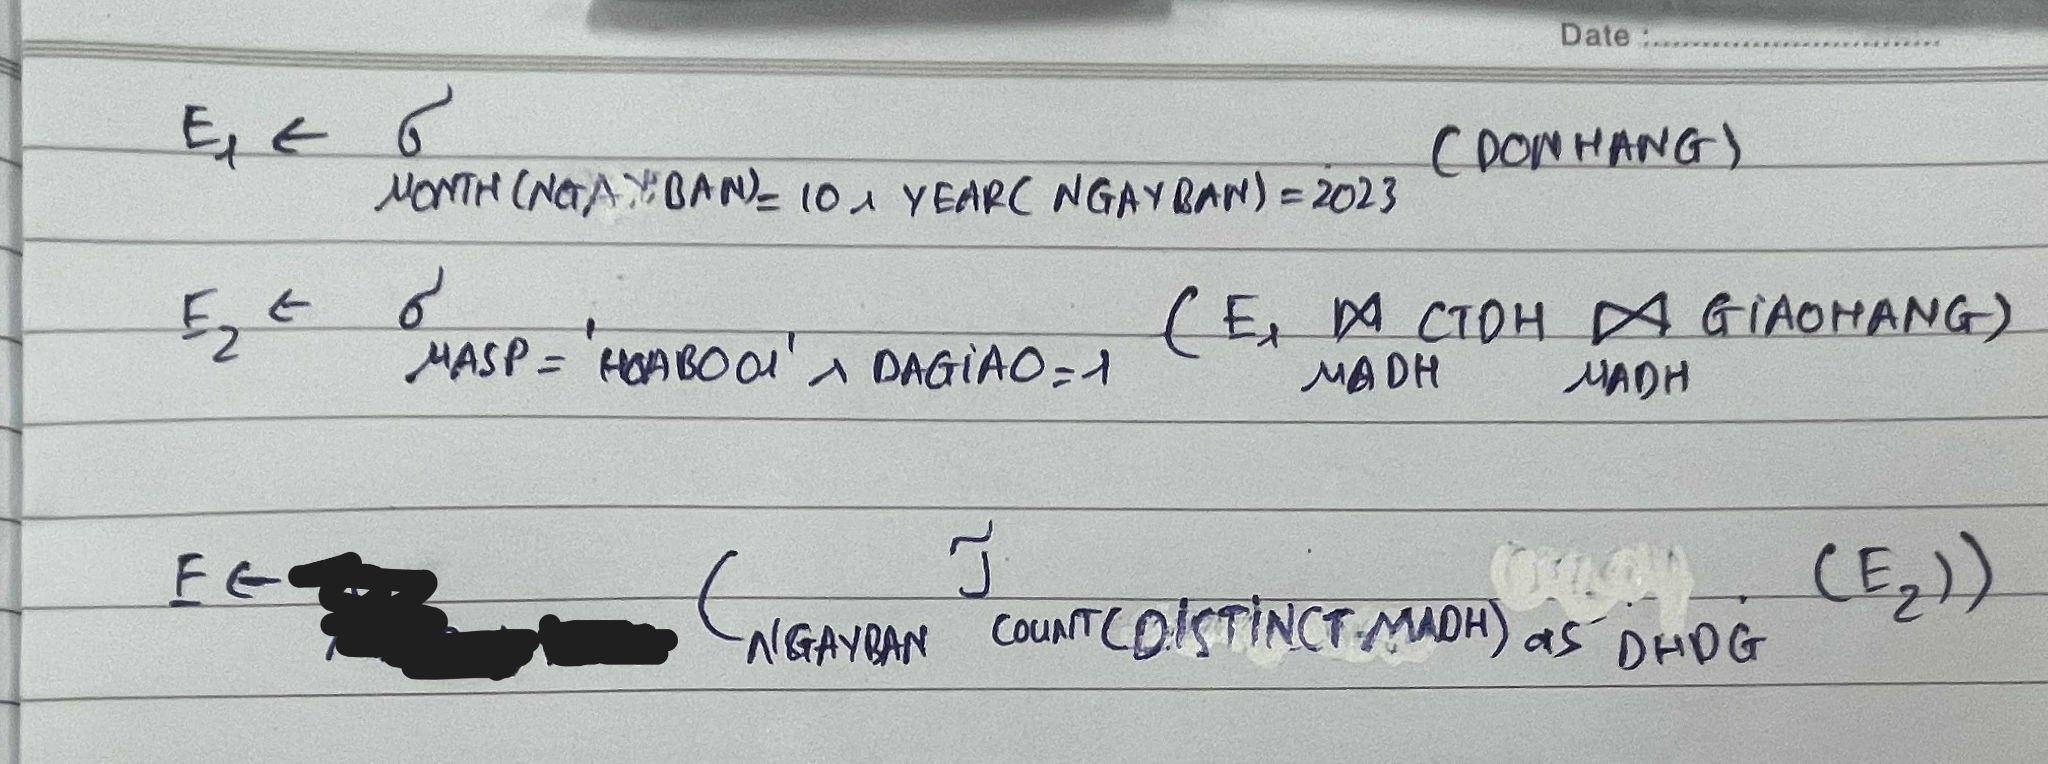 Date :
E₁ ← σ MONTH(NGAYBAN)=10 ∧ YEAR(NGAYBAN)=2023 (DONHANG)
E₂ ← σ MASP='HOAB001' ∧ DAGIAO=1 (E₁ ⋈ MADH CTDH ⋈ MADH GIAOHANG)
E ← (NGAYBAN ℑ COUNT(DISTINCT MADH) as DHDG (E₂))